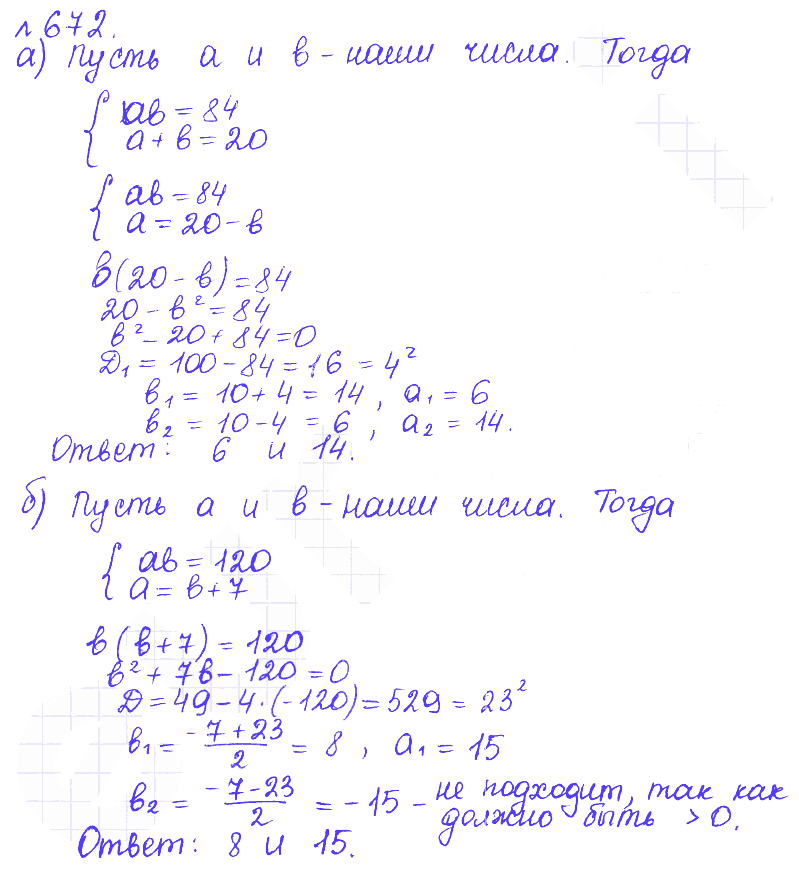 №672.
а) Пусть а и в - наши числа. Тогда
{ ав = 84
а + в = 20
{ ав = 84
а = 20 - в
в(20 - в) = 84
20 - в² = 84
в² - 20 + 84 = 0
Д₁ = 100 - 84 = 16 = 4²
в₁ = 10 + 4 = 14, а₁ = 6
в₂ = 10 - 4 = 6, а₂ = 14.
Ответ: 6 и 14.
б) Пусть а и в - наши числа. Тогда
{ ав = 120
а = в + 7
в(в + 7) = 120
в² + 7в - 120 = 0
Д = 49 - 4·(-120) = 529 = 23²
в₁ = (-7 + 23)/2 = 8, а₁ = 15
в₂ = (-7 - 23)/2 = -15 - не подходит, так как
должно быть > 0.
Ответ: 8 и 15.